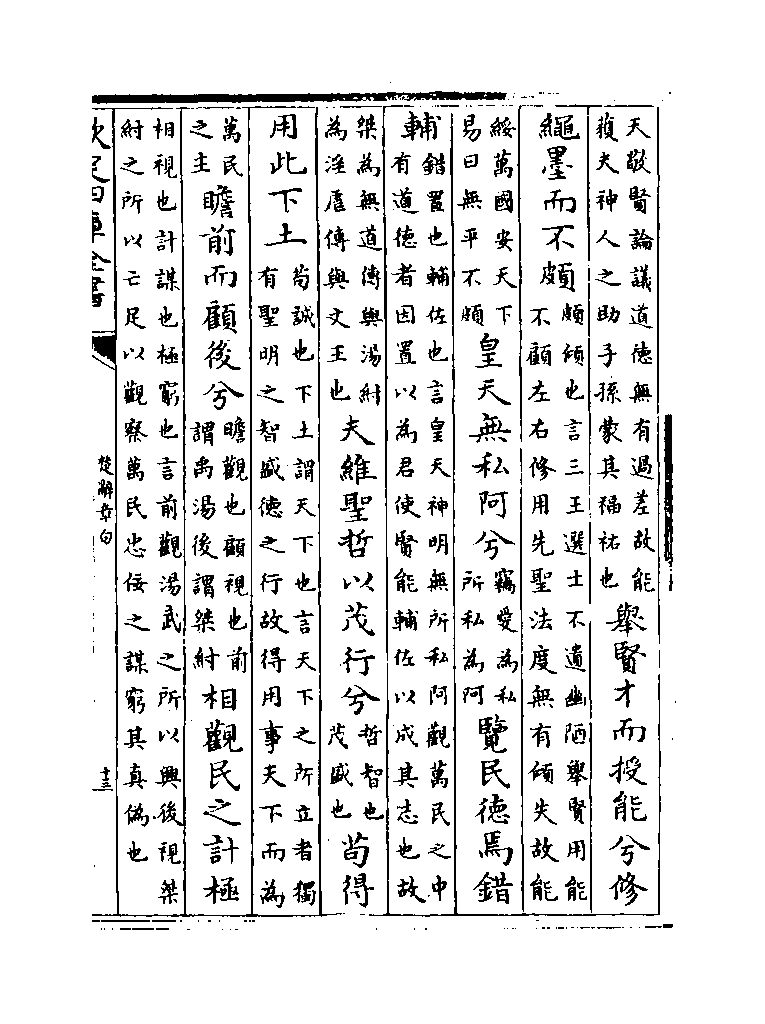 天敬賢論議道德無有過差故能
獲夫神人之助子孫蒙其福祐也
舉賢才而授能兮修
繩墨而不頗
頗傾也言三王選士不遺幽陋舉賢用能
不顧左右修用先聖法度無有傾失故能
綏萬國安天下
易曰無平不頗
皇天無私阿兮
竊愛為私
所私為阿
覽民德焉錯
輔
錯置也輔佐也言皇天神明無所私阿觀萬民之中
有道德者因置以為君使賢能輔佐以成其志也故
桀為無道傳與湯紂
為淫虐傳與文王也
夫維聖哲以茂行兮
哲智也
茂盛也
苟得
用此下土
苟誠也下土謂天下也言天下之所立者獨
有聖明之智盛德之行故得用事天下而為
萬民
之主
瞻前而顧後兮
瞻觀也顧視也前
謂禹湯後謂桀紂
相觀民之計極
相視也計謀也極窮也言前觀湯武之所以興後視桀
紂之所以亡足以觀察萬民忠佞之謀窮其真偽也
欽定四庫全書
楚辭章句
十三